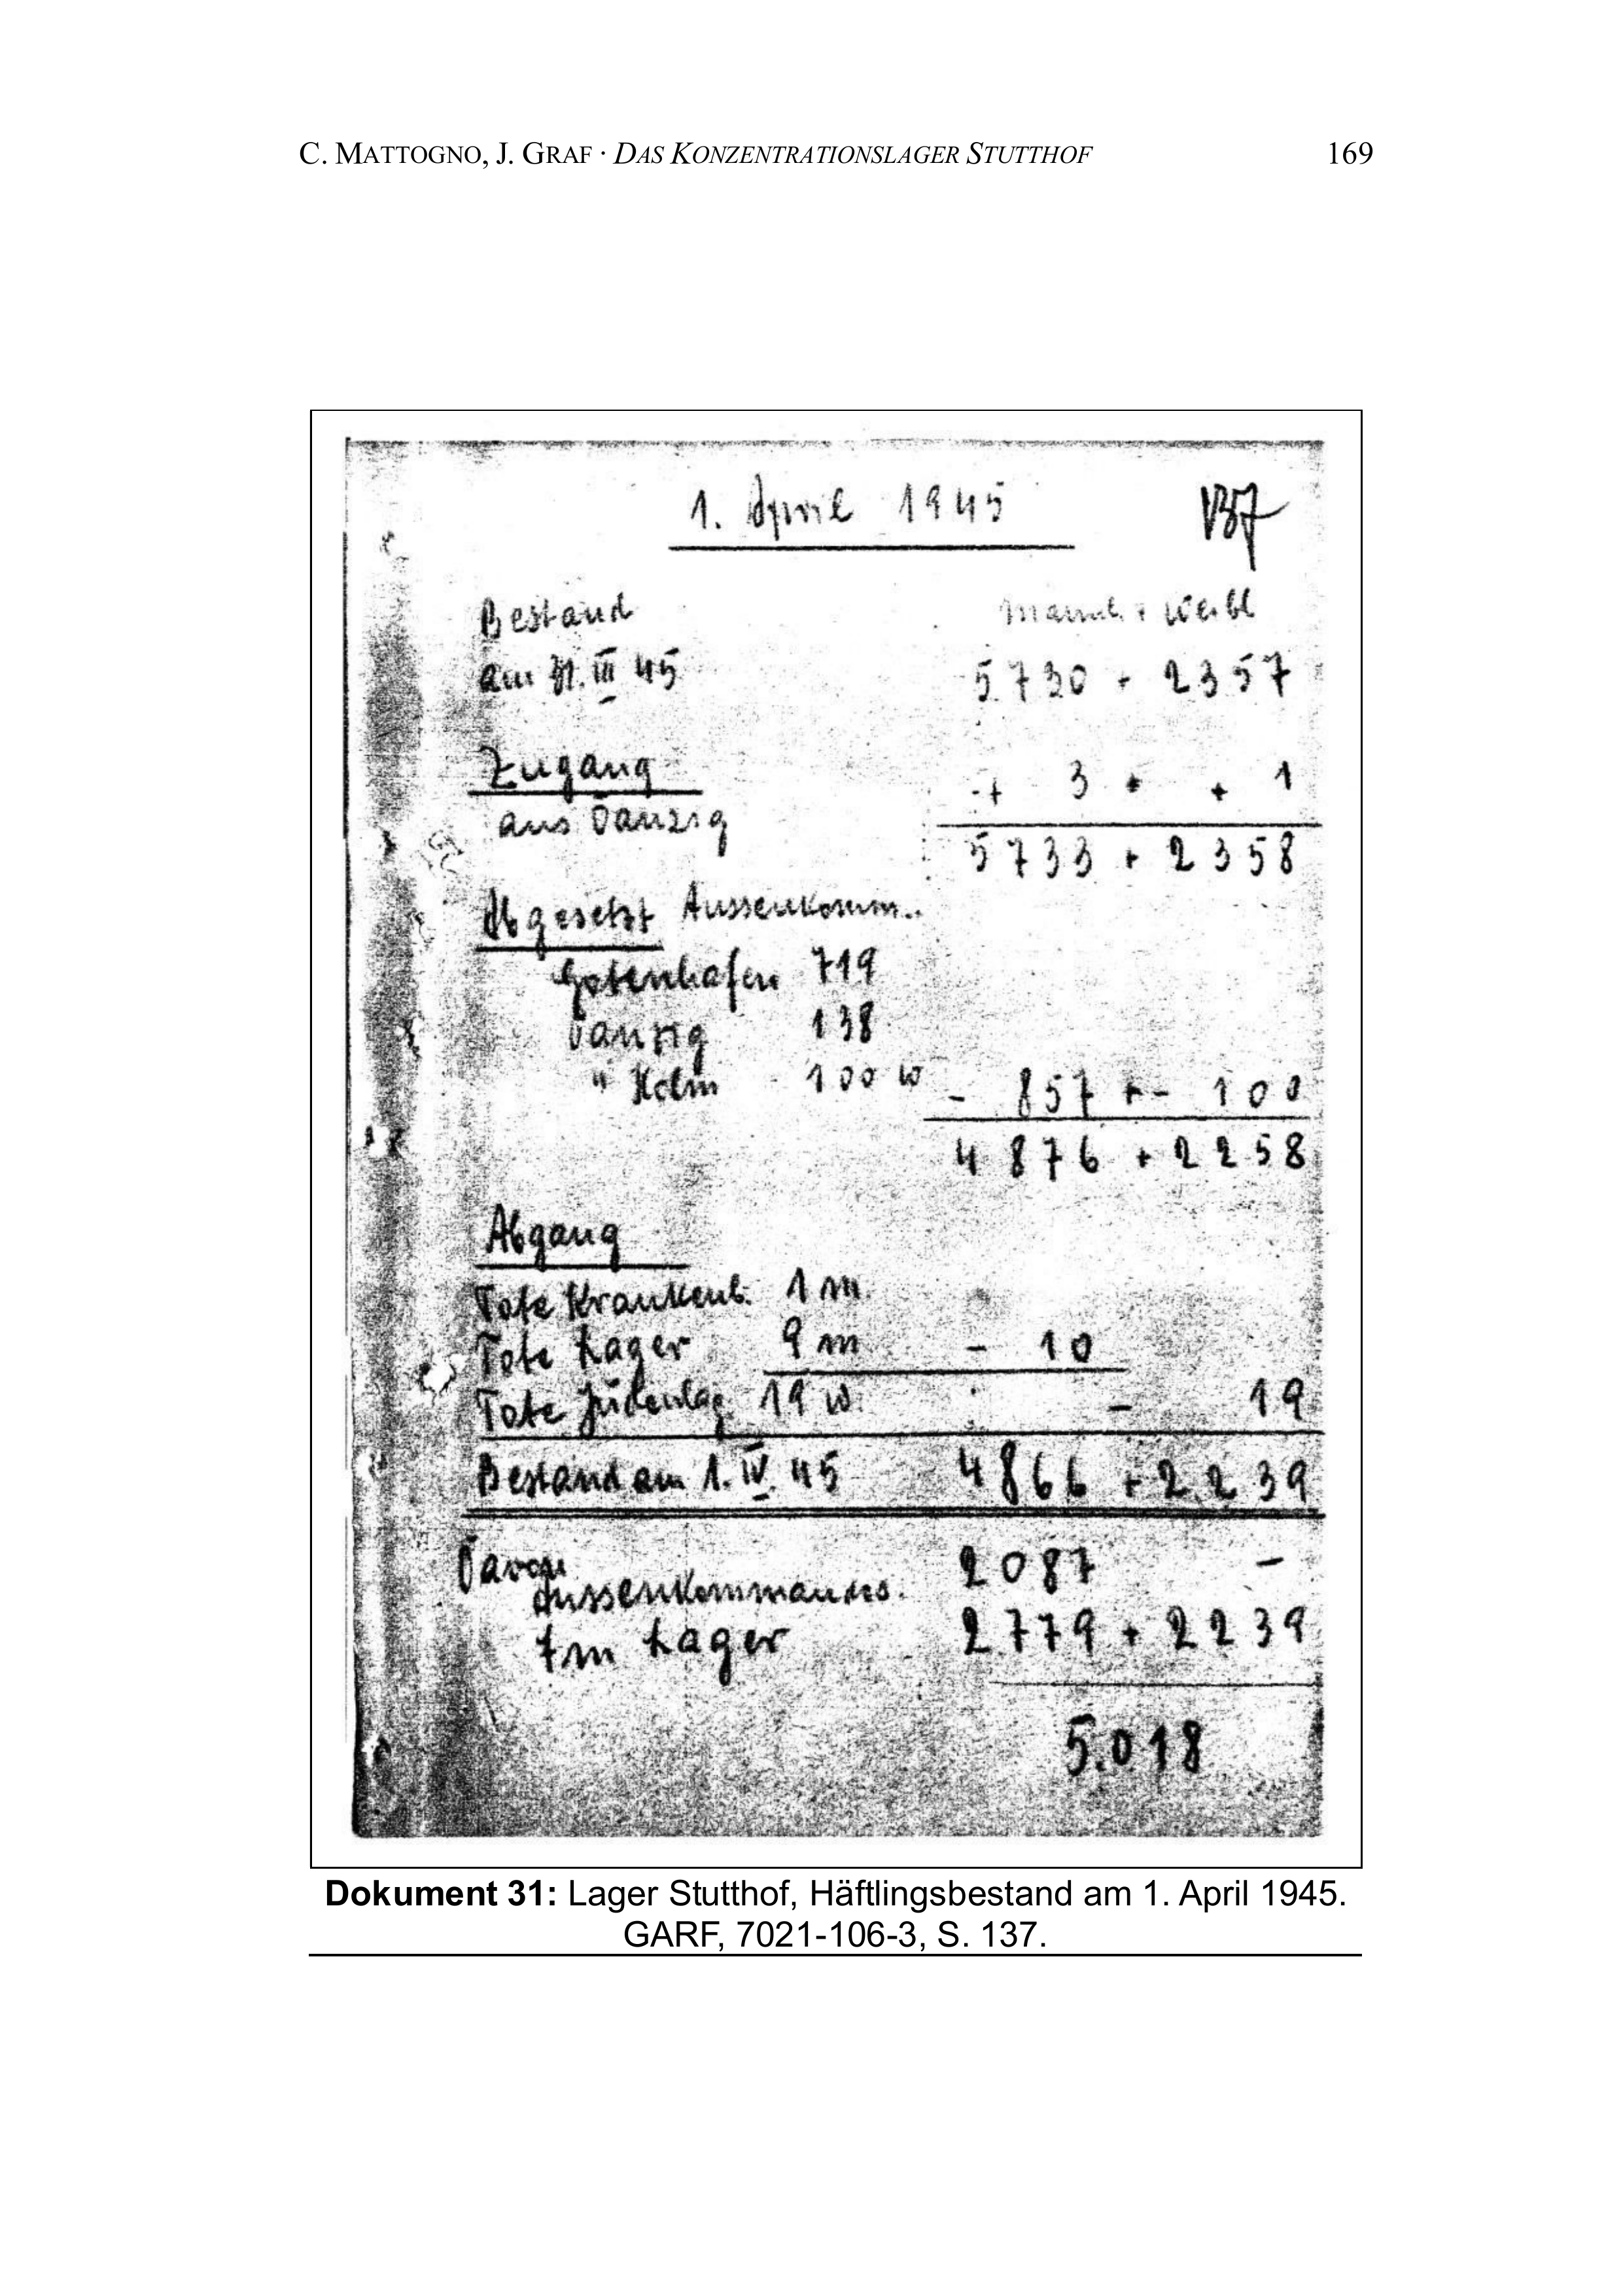 C. MATTOGNO, J. GRAF · DAS KONZENTRATIONSLAGER STUTTHOF 169
1. April 1945 137
Bestand Männl. + Weibl
am 31. III 45 5730 + 2357
Zugang + 3 + + 1
aus Danzig
5733 + 2358
Abgesetzt Aussenkomm..
Gotenhafen 719
Danzig 138
" Holm 100 w - 857 + - 100
4876 + 2258
Abgang
Tote Krankenb. 1 m.
Tote Lager 9 m - 10
Tote Judenlag. 19 w. - 19
Bestand am 1. IV. 45 4866 + 2239
Davon 2087 -
Aussenkommandos.
Im Lager 2779 + 2239
5.018
Dokument 31: Lager Stutthof, Häftlingsbestand am 1. April 1945.
GARF, 7021-106-3, S. 137.